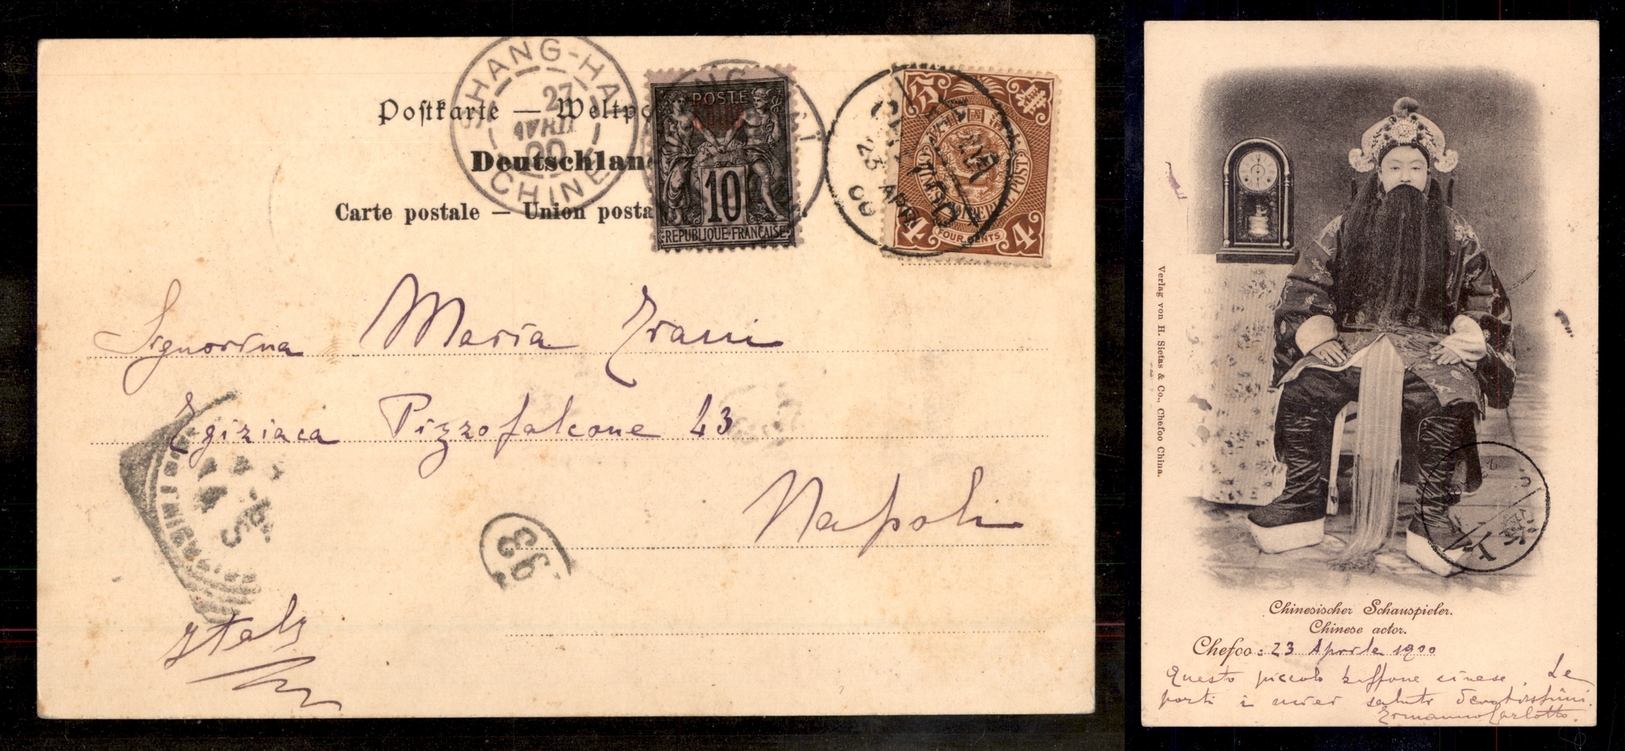 Postkarte — Weltpo
Deutschlan
Carte postale — Union posta
SHANG-HAI
27
AVRIL
00
CHINE
POSTE
10
REPUBLIQUE FRANÇAISE
4 4
FOUR CENTS
23 APRI
00
Signorina Maria Zrani
Egiziaca Pizzofalcone 43
Napoli
Italy
93
Verlag von H. Sietas & Co., Chefoo China.
Chinesischer Schauspieler.
Chinese actor.
Chefoo: 23 Aprile 1900
Questo piccolo buffone cinese, Le
porti i miei saluti